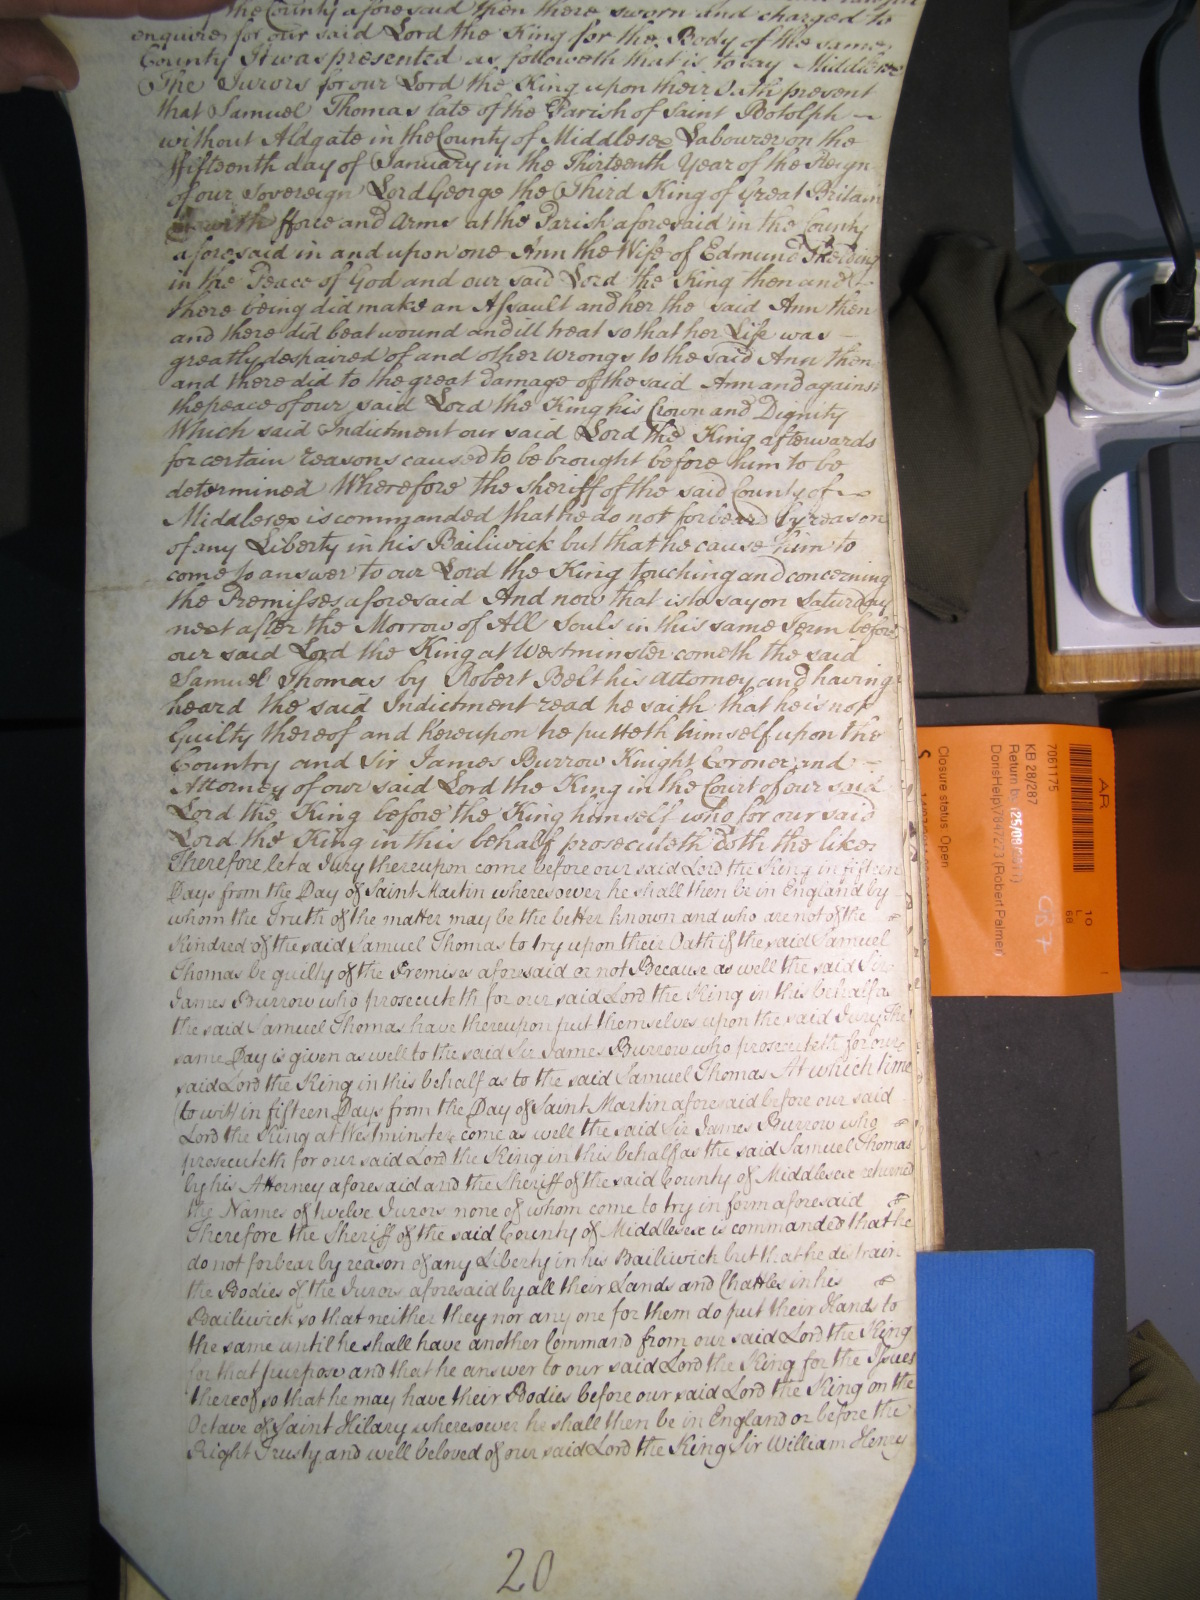 the County aforesaid then there sworn and charged to
enquire for our said Lord the King for the Body of the same
County It was presented as followeth that is to say Middlesex
The Jurors for our Lord the King upon their Oath present
that Samuel Thomas late of the Parish of Saint Botolph
without Aldgate in the County of Middlesex Labourer on the
fifteenth day of January in the Thirteenth Year of the Reign
of our Sovereign Lord George the Third King of Great Britain
with fforce and Arms at the Parish aforesaid in the County
aforesaid in and upon one Ann the Wife of Edmund
in the Peace of God and our said Lord the King then and
there being did make an Assault and her the said Ann then
and there did beat wound and ill treat so that her Life was
greatly despaired of and other wrongs to the said Ann then
and there did to the great Damage of the said Ann and against
the peace of our said Lord the King his Crown and Dignity
Which said Indictment our said Lord the King afterwards
for certain reasons caused to be brought before him to be
determined Wherefore the Sheriff of the said County of
Middlesex is commanded that he do not forbear by reason
of any Liberty in his Bailiwick but that he cause him to
come to answer to our Lord the King touching and concerning
the Premisses aforesaid And now that is to say on Saturday
next after the Morrow of All Souls in this same Term before
our said Lord the King at Westminster cometh the said
Samuel Thomas by Robert Belt his Attorney and having
heard the said Indictment read he saith that he is not
Guilty thereof and hereupon he putteth himself upon the
Country and Sir James Burrow Knight Coroner and
Attorney of our said Lord the King in the Court of our said
Lord the King before the King himself who for our said
Lord the King in this behalf prosecuteth doth the like
Therefore let a Jury thereupon come before our said Lord the King in fifteen
Days from the Day of Saint Martin wheresoever he shall then be in England by
whom the Truth of the matter may be the better known and who are not of the
Kindred of the said Samuel Thomas to try upon their Oath if the said Samuel
Thomas be guilty of the Premises aforesaid or not Because as well the said Sir
James Burrow who prosecuteth for our said Lord the King in this behalf as
the said Samuel Thomas have thereupon put themselves upon the said Jury The
same Day is given as well to the said Sir James Burrow who prosecuteth for our
said Lord the King in this behalf as to the said Samuel Thomas At which time
(to wit) in fifteen Days from the Day of Saint Martin aforesaid before our said
Lord the King at Westminster come as well the said Sir James Burrow who
prosecuteth for our said Lord the King in this behalf as the said Samuel Thomas
by his Attorney aforesaid and the Sheriff of the said County of Middlesex returned
the Names of twelve Jurors none of whom come to try in form aforesaid
Therefore the Sheriff of the said County of Middlesex is commanded that he
do not forbear by reason of any Liberty in his Bailiwick but that he distrain
the Bodies of the Jurors aforesaid by all their Lands and Chattles in his
Bailiwick so that neither they nor any one for them do put their Hands to
the same until he shall have another Command from our said Lord the King
for that purpose and that he answer to our said Lord the King for the Issues
thereof so that he may have their Bodies before our said Lord the King on the
Octave of Saint Hilary wheresoever he shall then be in England or before the
Right Trusty and well beloved of our said Lord the King Sir William Henry
20
AR
7061175
KB 28/287
Return by
DorisHelp
(Robert Palmer)
Closure status: Open